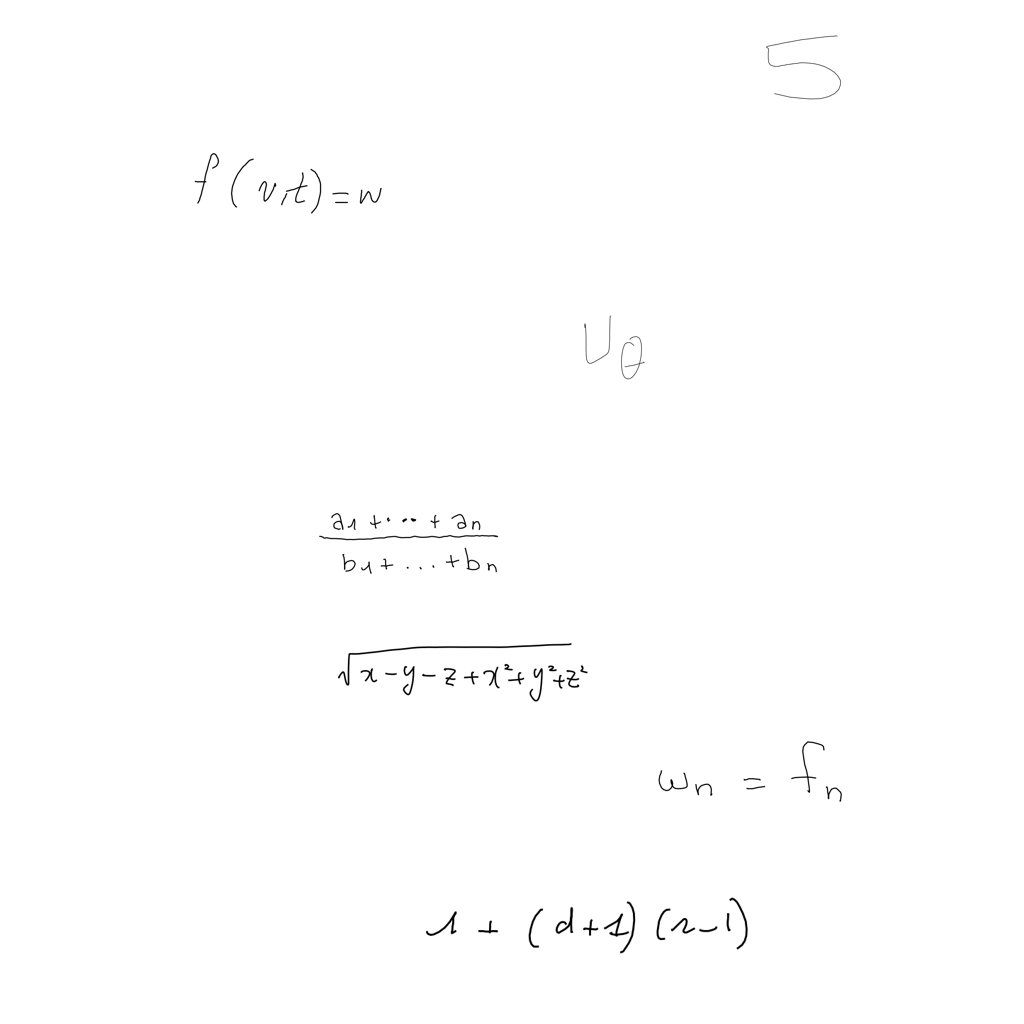 5
f(v,t)=w
U_θ
\frac{a_1+\cdots+a_n}{b_1+...+b_n}
\sqrt{x-y-z+x^2+y^2+z^2}
w_n = f_n
1+(d+1)(r-1)